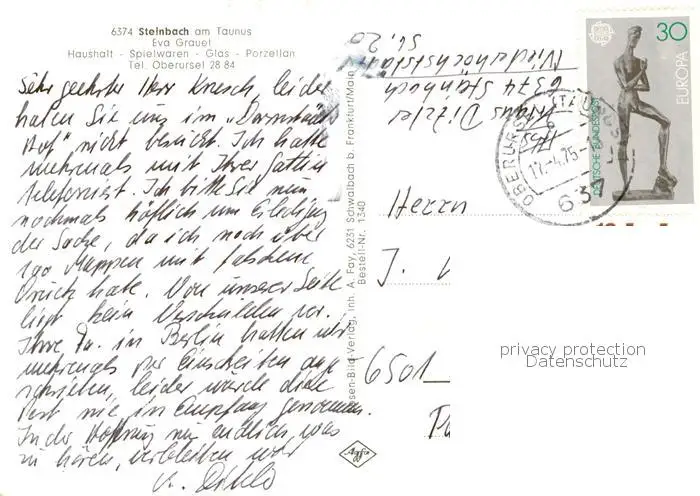 6374 Steinbach am Taunus
Eva Grauel
Haushalt - Spielwaren - Glas - Porzellan
Tel. Oberursel 28 84
Sehr geehrter Herr Knesch, leider
haben Sie uns im „Darmstädter
Hof" nicht besucht. Ich hatte
mehrmals mit Ihrer Gattin
telefoniert. Ich bitte Sie nun
nochmals höflich um Erledigung
der Sache, da ich noch über
100 Mappen mit falschem
Druck habe. Von unserer Seite
liegt kein Verschulden vor.
Ihre Fa. in Berlin hatten wir
mehrmals per Einschreiben ange
schrieben, leider wurde diese
Post nie in Empfang genommen.
In der Hoffnung nun endlich was
zu hören, verbleiben wir
esen-Bild-Verlag, Inh. A. Fay, 6231 Schwalbach b. Frankfurt/Main
Bestell-Nr. 1340
Agfa
Hans
6374 Steinbach
Niederhöchstädter
Str. 20
30
EUROPA
DEUTSCHE BUNDESPOST
OBERURSEL (TAUNUS)
17.-4.75
637
Herrn
J.
6501
privacy protection
Datenschutz